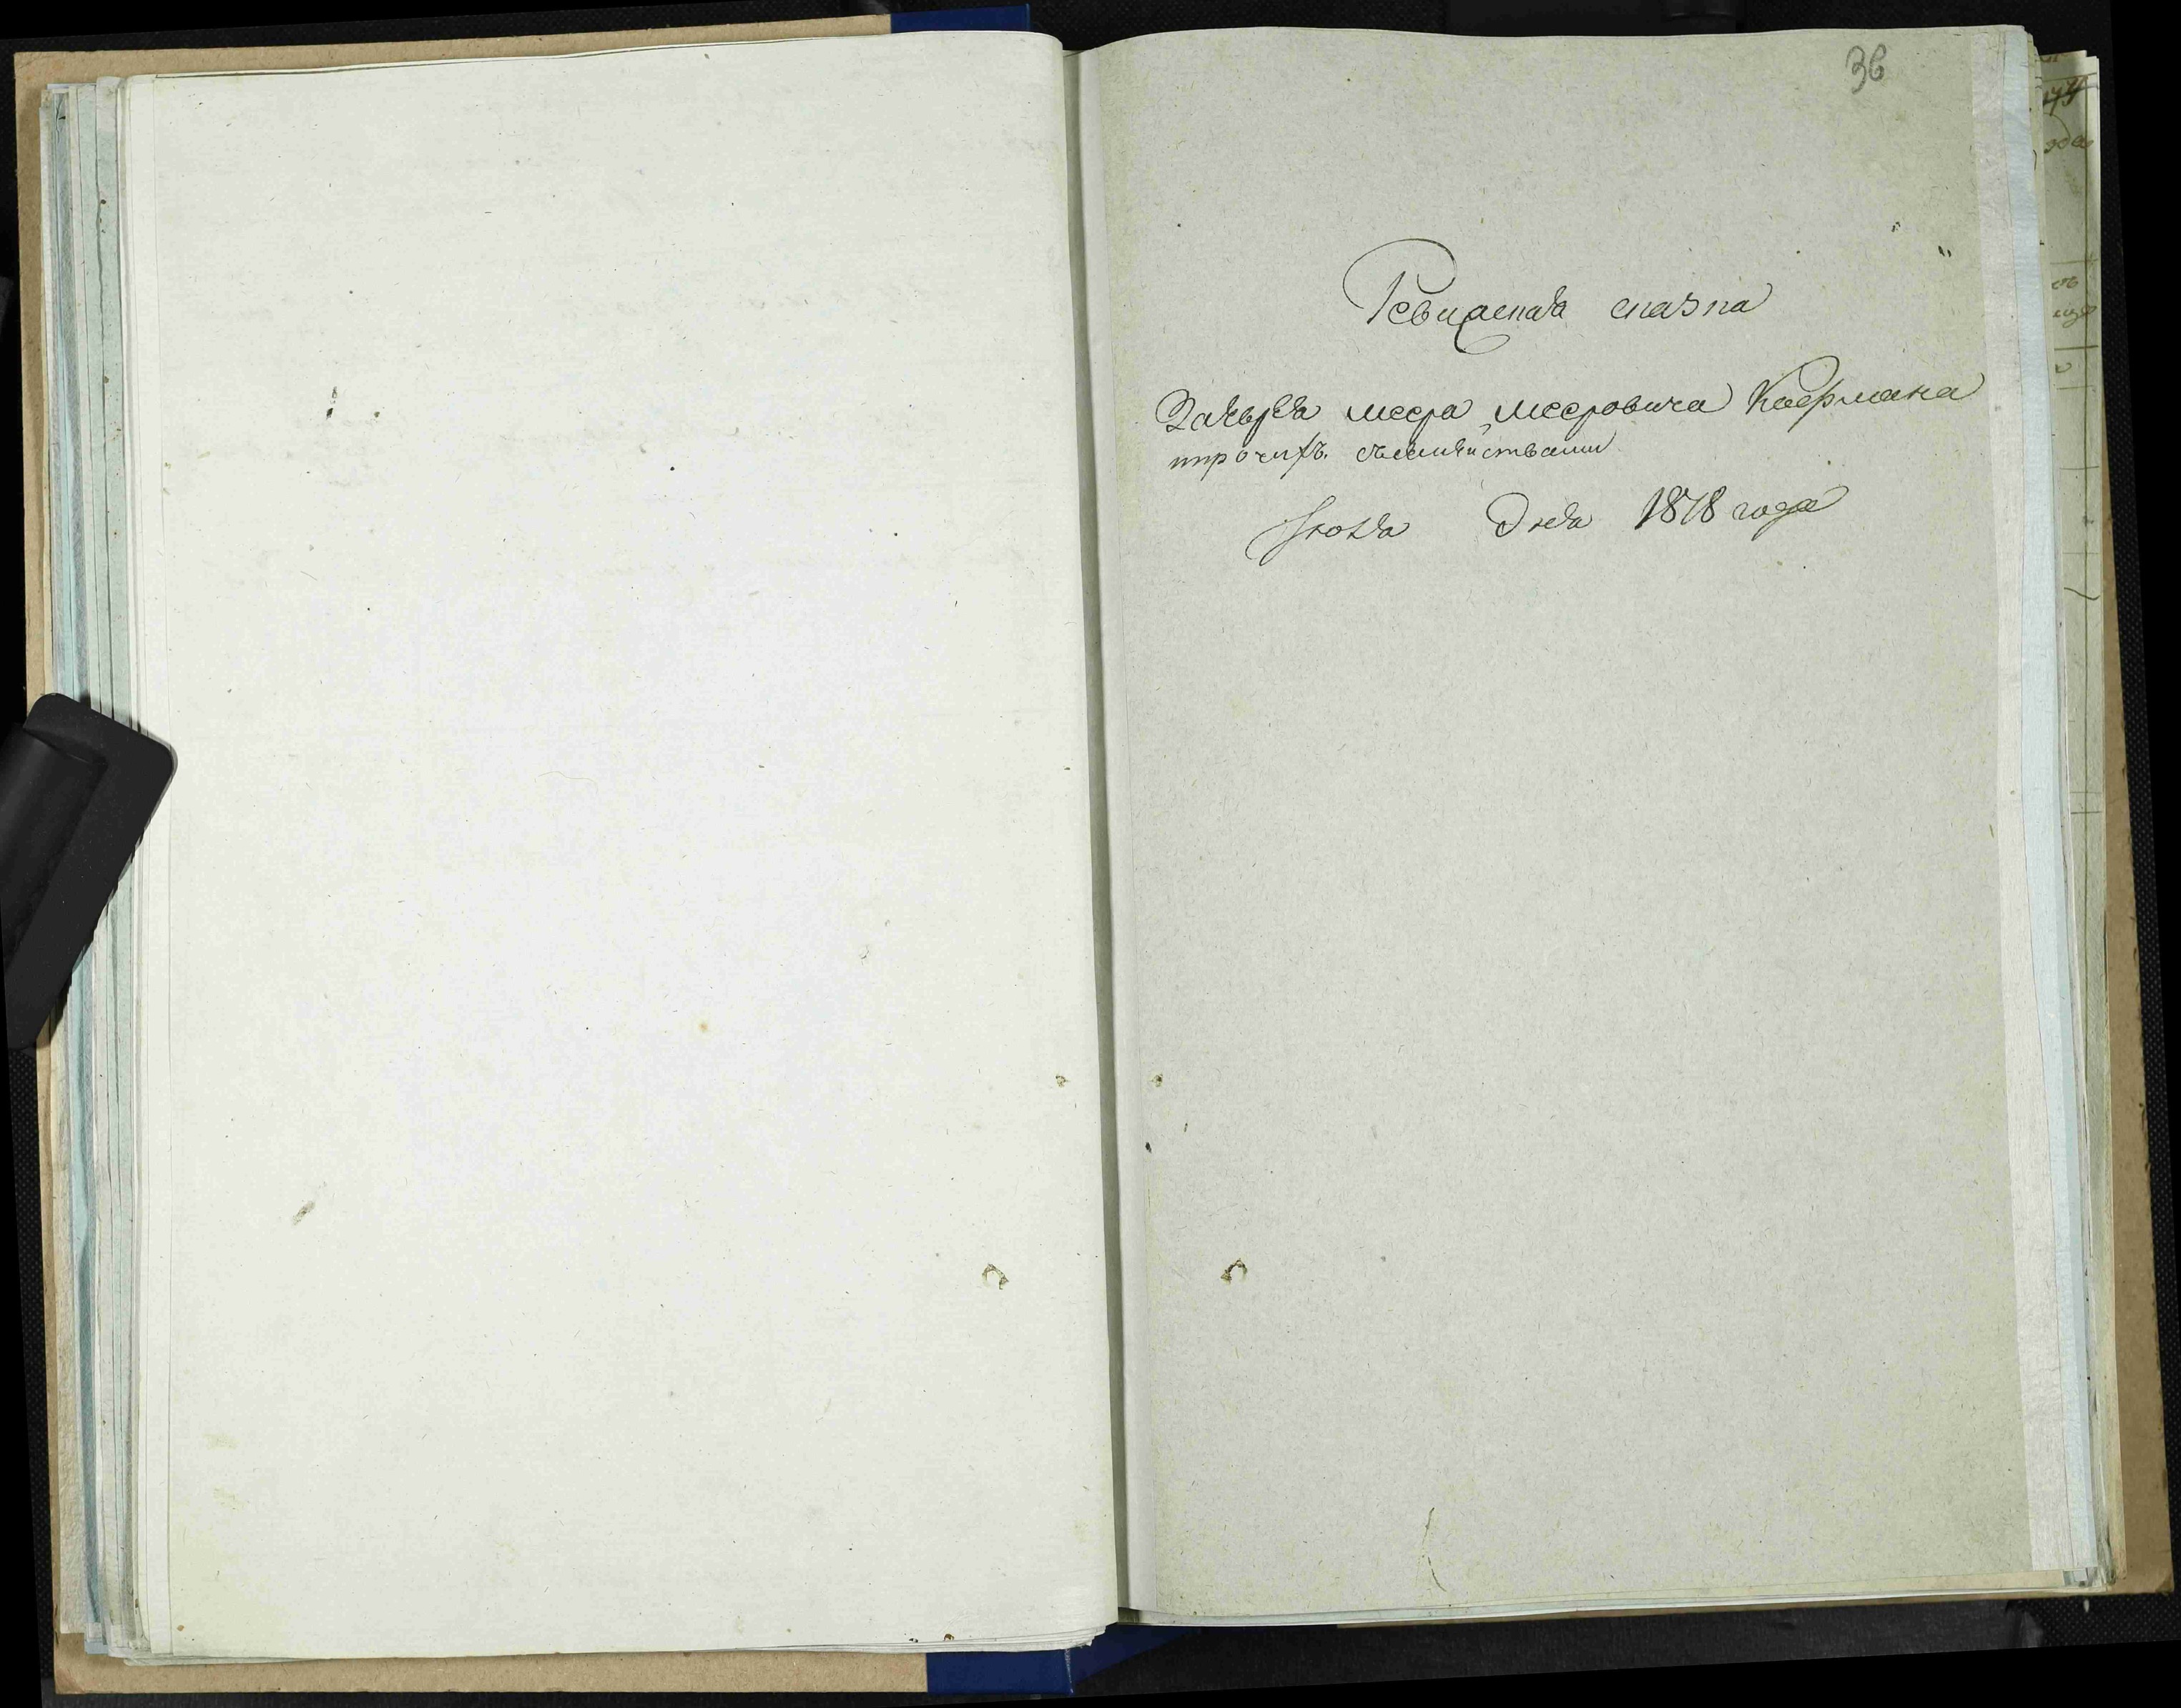 36
Ревизская сказка
Меера Мееровича Кофмана
прочихъ семействами
Июня Дня 1878 года